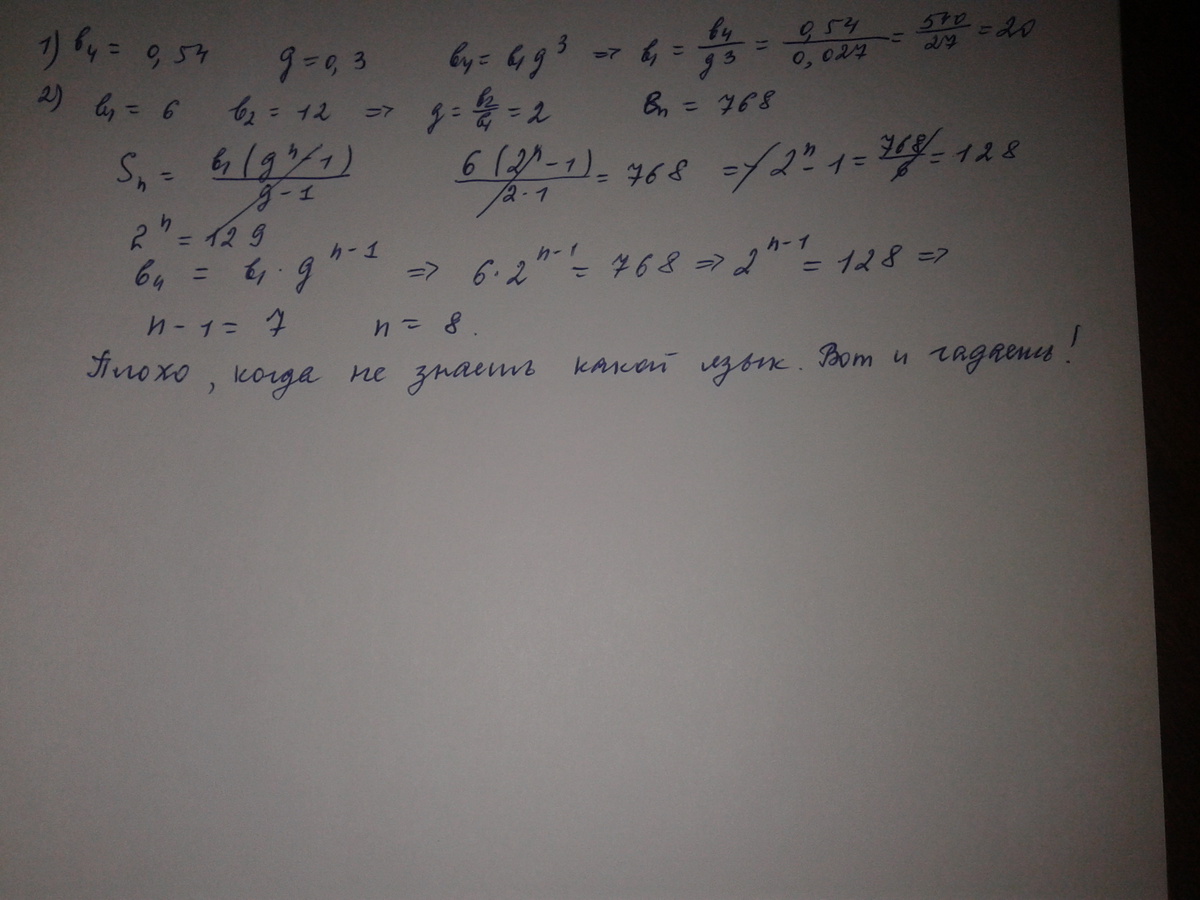 1) b₄ = 0,54 q = 0,3 b₄ = b₁q³ => b₁ = b₄/q³ = 0,54/0,027 = 540/27 = 20
2) b₁ = 6 b₂ = 12 => q = b₂/b₁ = 2 bₙ = 768
Sₙ = b₁(qⁿ-1)/(q-1) 6(2ⁿ-1)/(2-1) = 768 => 2ⁿ-1 = 768/6 = 128
2ⁿ = 129
b₄ = b₁·qⁿ⁻¹ => 6·2ⁿ⁻¹ = 768 => 2ⁿ⁻¹ = 128 =>
n-1 = 7 n = 8.
Плохо, когда не знаешь какой язык. Вот и гадаешь!